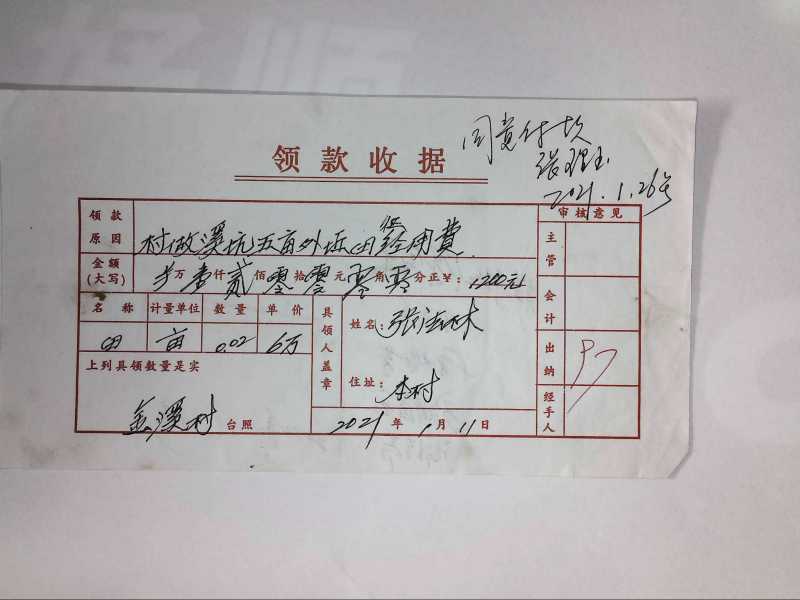 领款收据
同意付款
张理玉
2021.1.26号
领款原因
村做溪坑五亩外丘田征用费
金额(大写) 万壹仟贰佰零拾零元零角零分正¥:1200元
审核意见
主管
会计
出纳
经手人
名称 计量单位 数量 单价
田 亩 0.02 6万
具领人盖章
姓名:张法林
住址:本村
上列具领数量是实
金溪村 台照
2021年1月11日